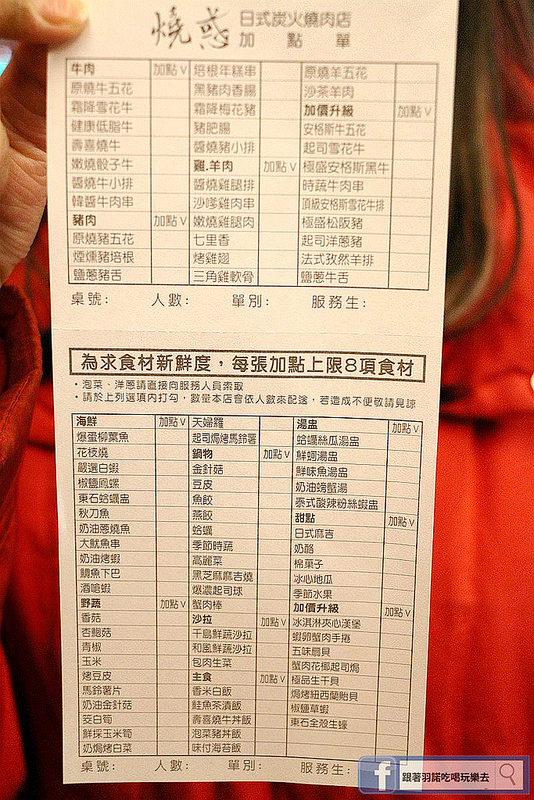 燒惑 日式炭火燒肉店
加點單
牛肉 加點V
原燒牛五花
霜降雪花牛
健康低脂牛
壽喜燒牛
嫩燒骰子牛
醬燒牛小排
韓醬牛肉串
豬肉 加點V
原燒豬五花
煙燻豬培根
鹽蔥豬舌
培根年糕串
黑豬肉香腸
霜降梅花豬
豬肥腸
醬燒豬小排
雞.羊肉 加點V
醬燒雞腿排
沙嗲雞肉串
嫩燒雞腿肉
七里香
烤雞翅
三角雞軟骨
原燒羊五花
沙茶羊肉
加價升級 加點V
安格斯牛五花
起司雪花牛
極盛安格斯黑牛
時蔬牛肉串
頂級安格斯雪花牛排
極盛松阪豬
起司洋蔥豬
法式孜然羊排
鹽蔥牛舌
桌號: 人數: 單別: 服務生:
為求食材新鮮度,每張加點上限8項食材
・泡菜、洋蔥請直接向服務人員索取
・請於上列選項內打勾,數量本店會依人數來配送,若造成不便敬請見諒
海鮮 加點V
爆蛋柳葉魚
花枝燒
嚴選白蝦
椒鹽鳳螺
東石蛤蠣盅
秋刀魚
奶油蔥燒魚
大魷魚串
奶油烤蝦
鯛魚下巴
酒嗆蝦
野蔬 加點V
香菇
杏鮑菇
青椒
玉米
烤豆皮
馬鈴薯片
奶油金針菇
茭白筍
鮮採玉米筍
奶焗烤白菜
天婦羅
起司焗烤馬鈴薯
鍋物 加點V
金針菇
豆皮
魚餃
燕餃
蛤蠣
季節時蔬
高麗菜
黑芝麻麻吉燒
爆濃起司球
蟹肉棒
沙拉 加點V
千島鮮蔬沙拉
和風鮮蔬沙拉
包肉生菜
主食 加點V
香米白飯
鮭魚茶漬飯
壽喜燒牛丼飯
泡菜豬丼飯
味付海苔飯
湯盅 加點V
蛤蠣絲瓜湯盅
鮮蚵湯盅
鮮味魚湯盅
奶油螃蟹湯
泰式酸辣粉絲蝦盅
甜點 加點V
日式麻吉
奶酪
棉菓子
冰心地瓜
季節水果
加價升級 加點V
冰淇淋夾心漢堡
蝦卵蟹肉手捲
五味扇貝
蟹肉花椰起司焗
極品生干貝
焗烤紐西蘭貽貝
椒鹽草蝦
東石全殼生蠔
桌號: 人數: 單別: 服務生:
f 跟著羽諾吃喝玩樂去